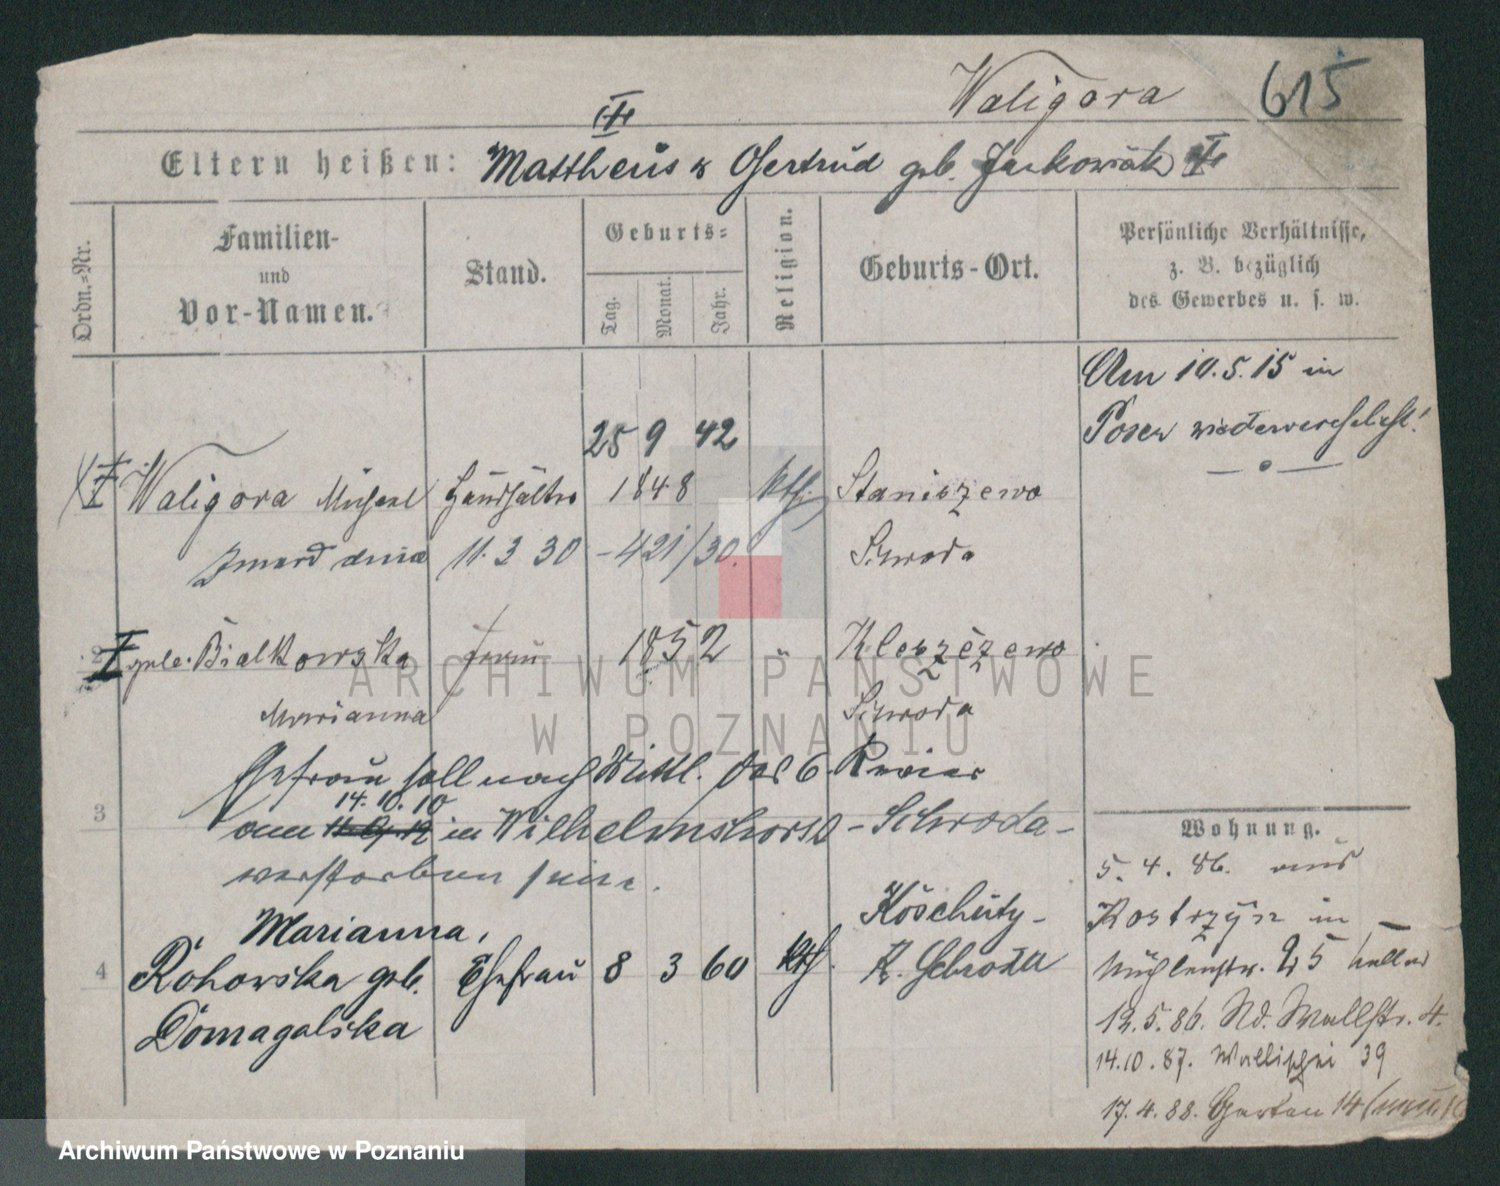 Waligora 615
Eltern heißen: Mattheus u Gertrud geb. Jackowiak
Ordn.-Nr.
Familien- und Vor-Namen.
Stand.
Geburts-
Tag. Monat. Jahr.
Religion.
Geburts-Ort.
Persönliche Verhältnisse,
z. B. bezüglich
des Gewerbes u. s. w.
Am 10.5.15 in
Posen wiederverehelicht!
25 9 42
Waligora Michael Handhälter 1848 kth. Staniszewo
11. 3 30 - 421/30. Schroda
2 geb. Bialkowska Frau 1852 " Kleszczewo
Marianna Schroda
Ehefrau soll nach Mittl. des 6. Revier
14. 10. 10
3 am in Wilhelmshorst - Schroda -
verstorben sein.
Marianna, Koschuty-
4 Rohowska geb. Ehefrau 8 3 60 kth. K. Schroda
Domagalska
Wohnung.
5. 4. 86. aus
Kostrzyn in
Mühlenstr. 5 Keller
12.5.86. Nd. Wallstr. 4.
14.10.87. Wallischei 39
17.4.88. Garten 14
ARCHIWUM PAŃSTWOWE
W POZNANIU
Archiwum Państwowe w Poznaniu